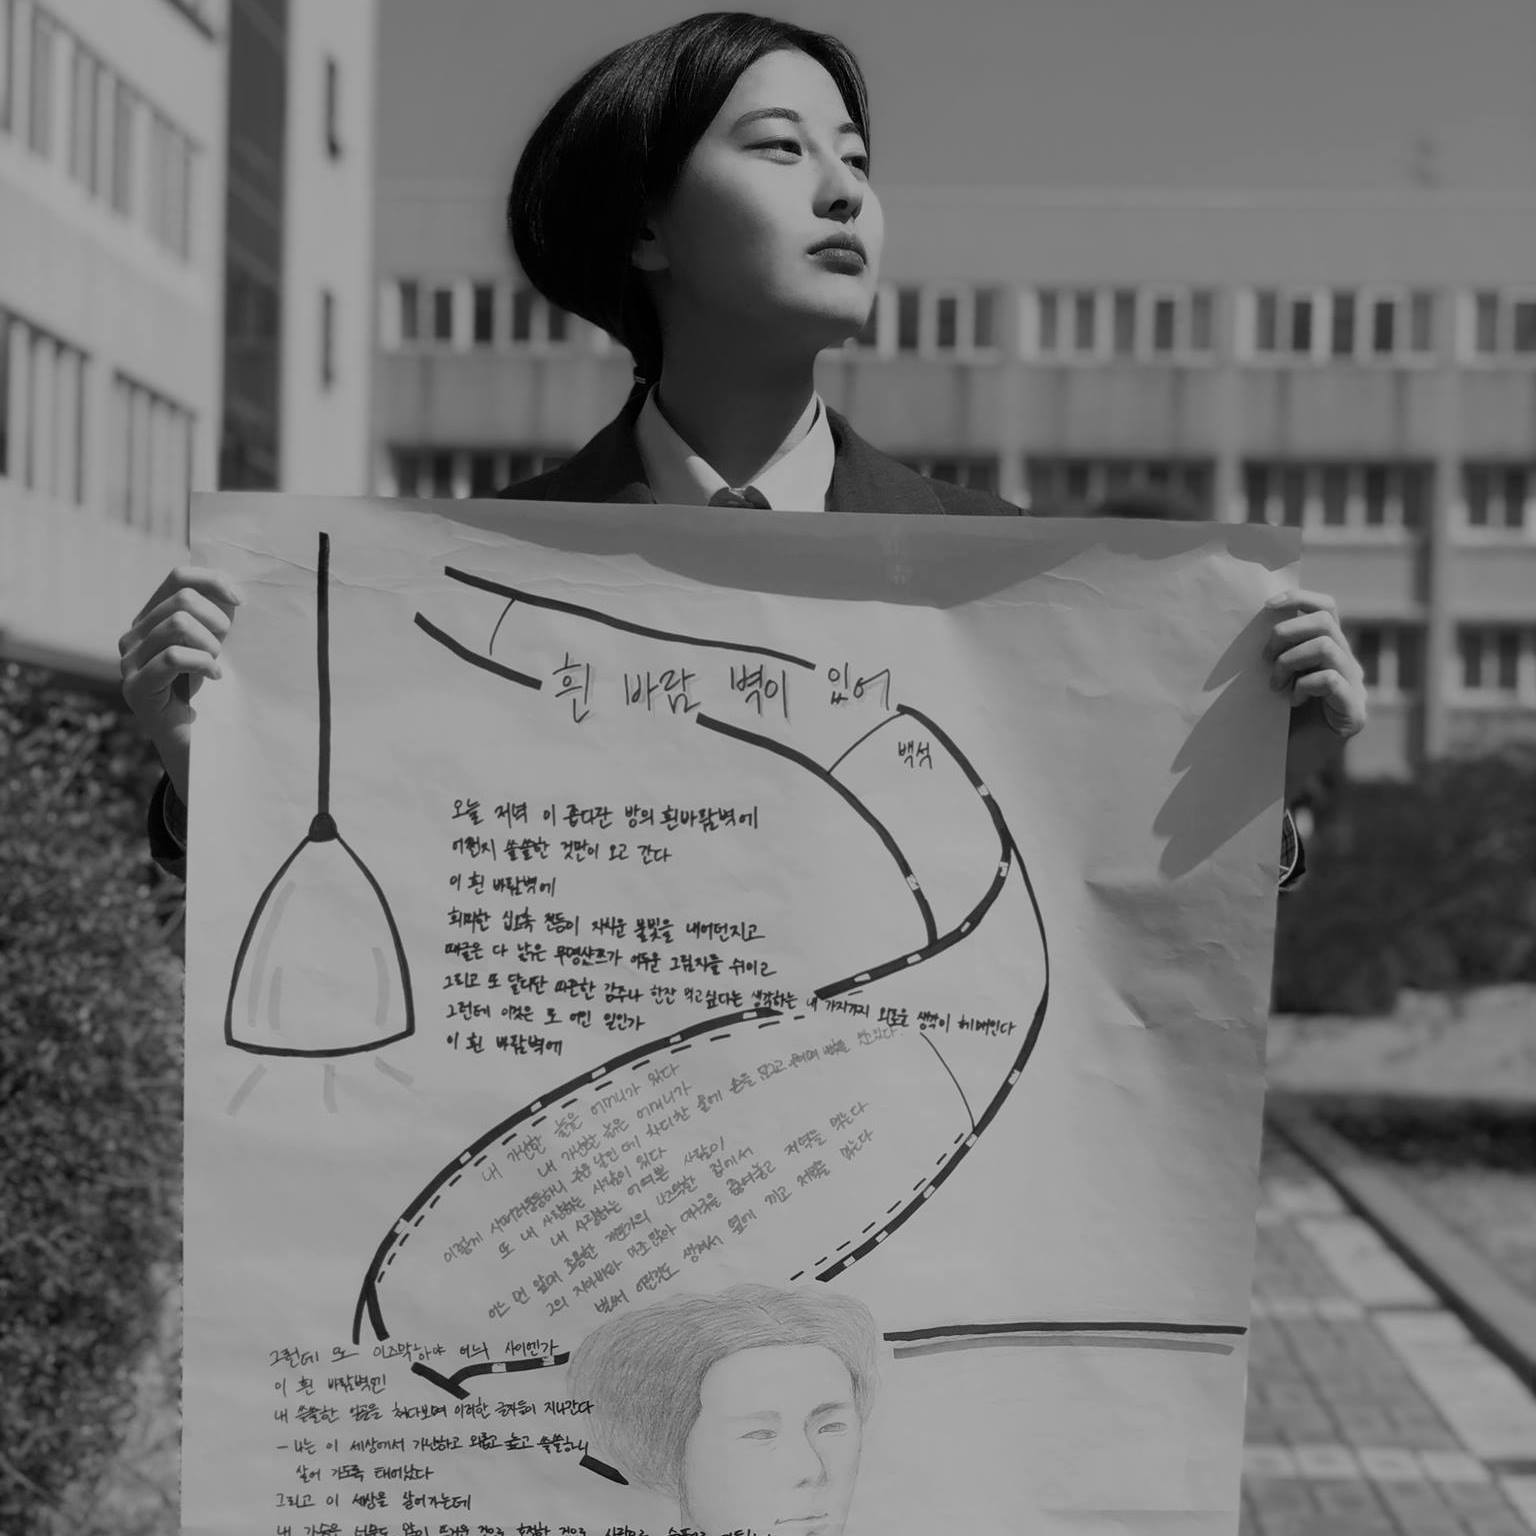 흰 바람 벽이 있어
백석
오늘 저녁 이 좁다란 방의 흰바람벽에
어쩐지 쓸쓸한 것만이 오고 간다
이 흰 바람벽에
희미한 십오촉 전등이 지치운 불빛을 내어던지고
때글은 다 낡은 무명샷쯔가 어두운 그림자를 쉬이고
그리고 또 달디단 따끈한 감주나 한잔 먹고싶다는 생각하는 내 가지가지 외로운 생각이 헤매인다
그런데 이것은 또 어인 일인가
이 흰 바람벽에
내 가난한 늙은 어머니가 있다
내 가난한 늙은 어머니가
이렇게 시퍼러둥둥하니 추운 날인데 차디찬 물에 손을 담그고 무이며 배추를 씻고있다
또 내 사랑하는 사람이 있다
내 사랑하는 어여쁜 사람이
어느 먼 앞대 조용한 개포가의 나즈막한 집에서
그의 지아비와 마조 앉아 대구국을 끓여놓고 저녁을 먹는다
벌써 어린것도 생겨서 옆에 끼고 저녁을 먹는다
그런데 또 이즈막하야 어느 사이엔가
이 흰 바람벽엔
내 쓸쓸한 얼굴을 쳐다보며 이러한 글자들이 지나간다
-나는 이 세상에서 가난하고 외롭고 높고 쓸쓸하니
살어 가도록 태어났다
그리고 이 세상을 살어가는데
내 가슴은 너무도 많이 뜨거운 것으로 호젓한 것으로 사랑으로 슬픔으로